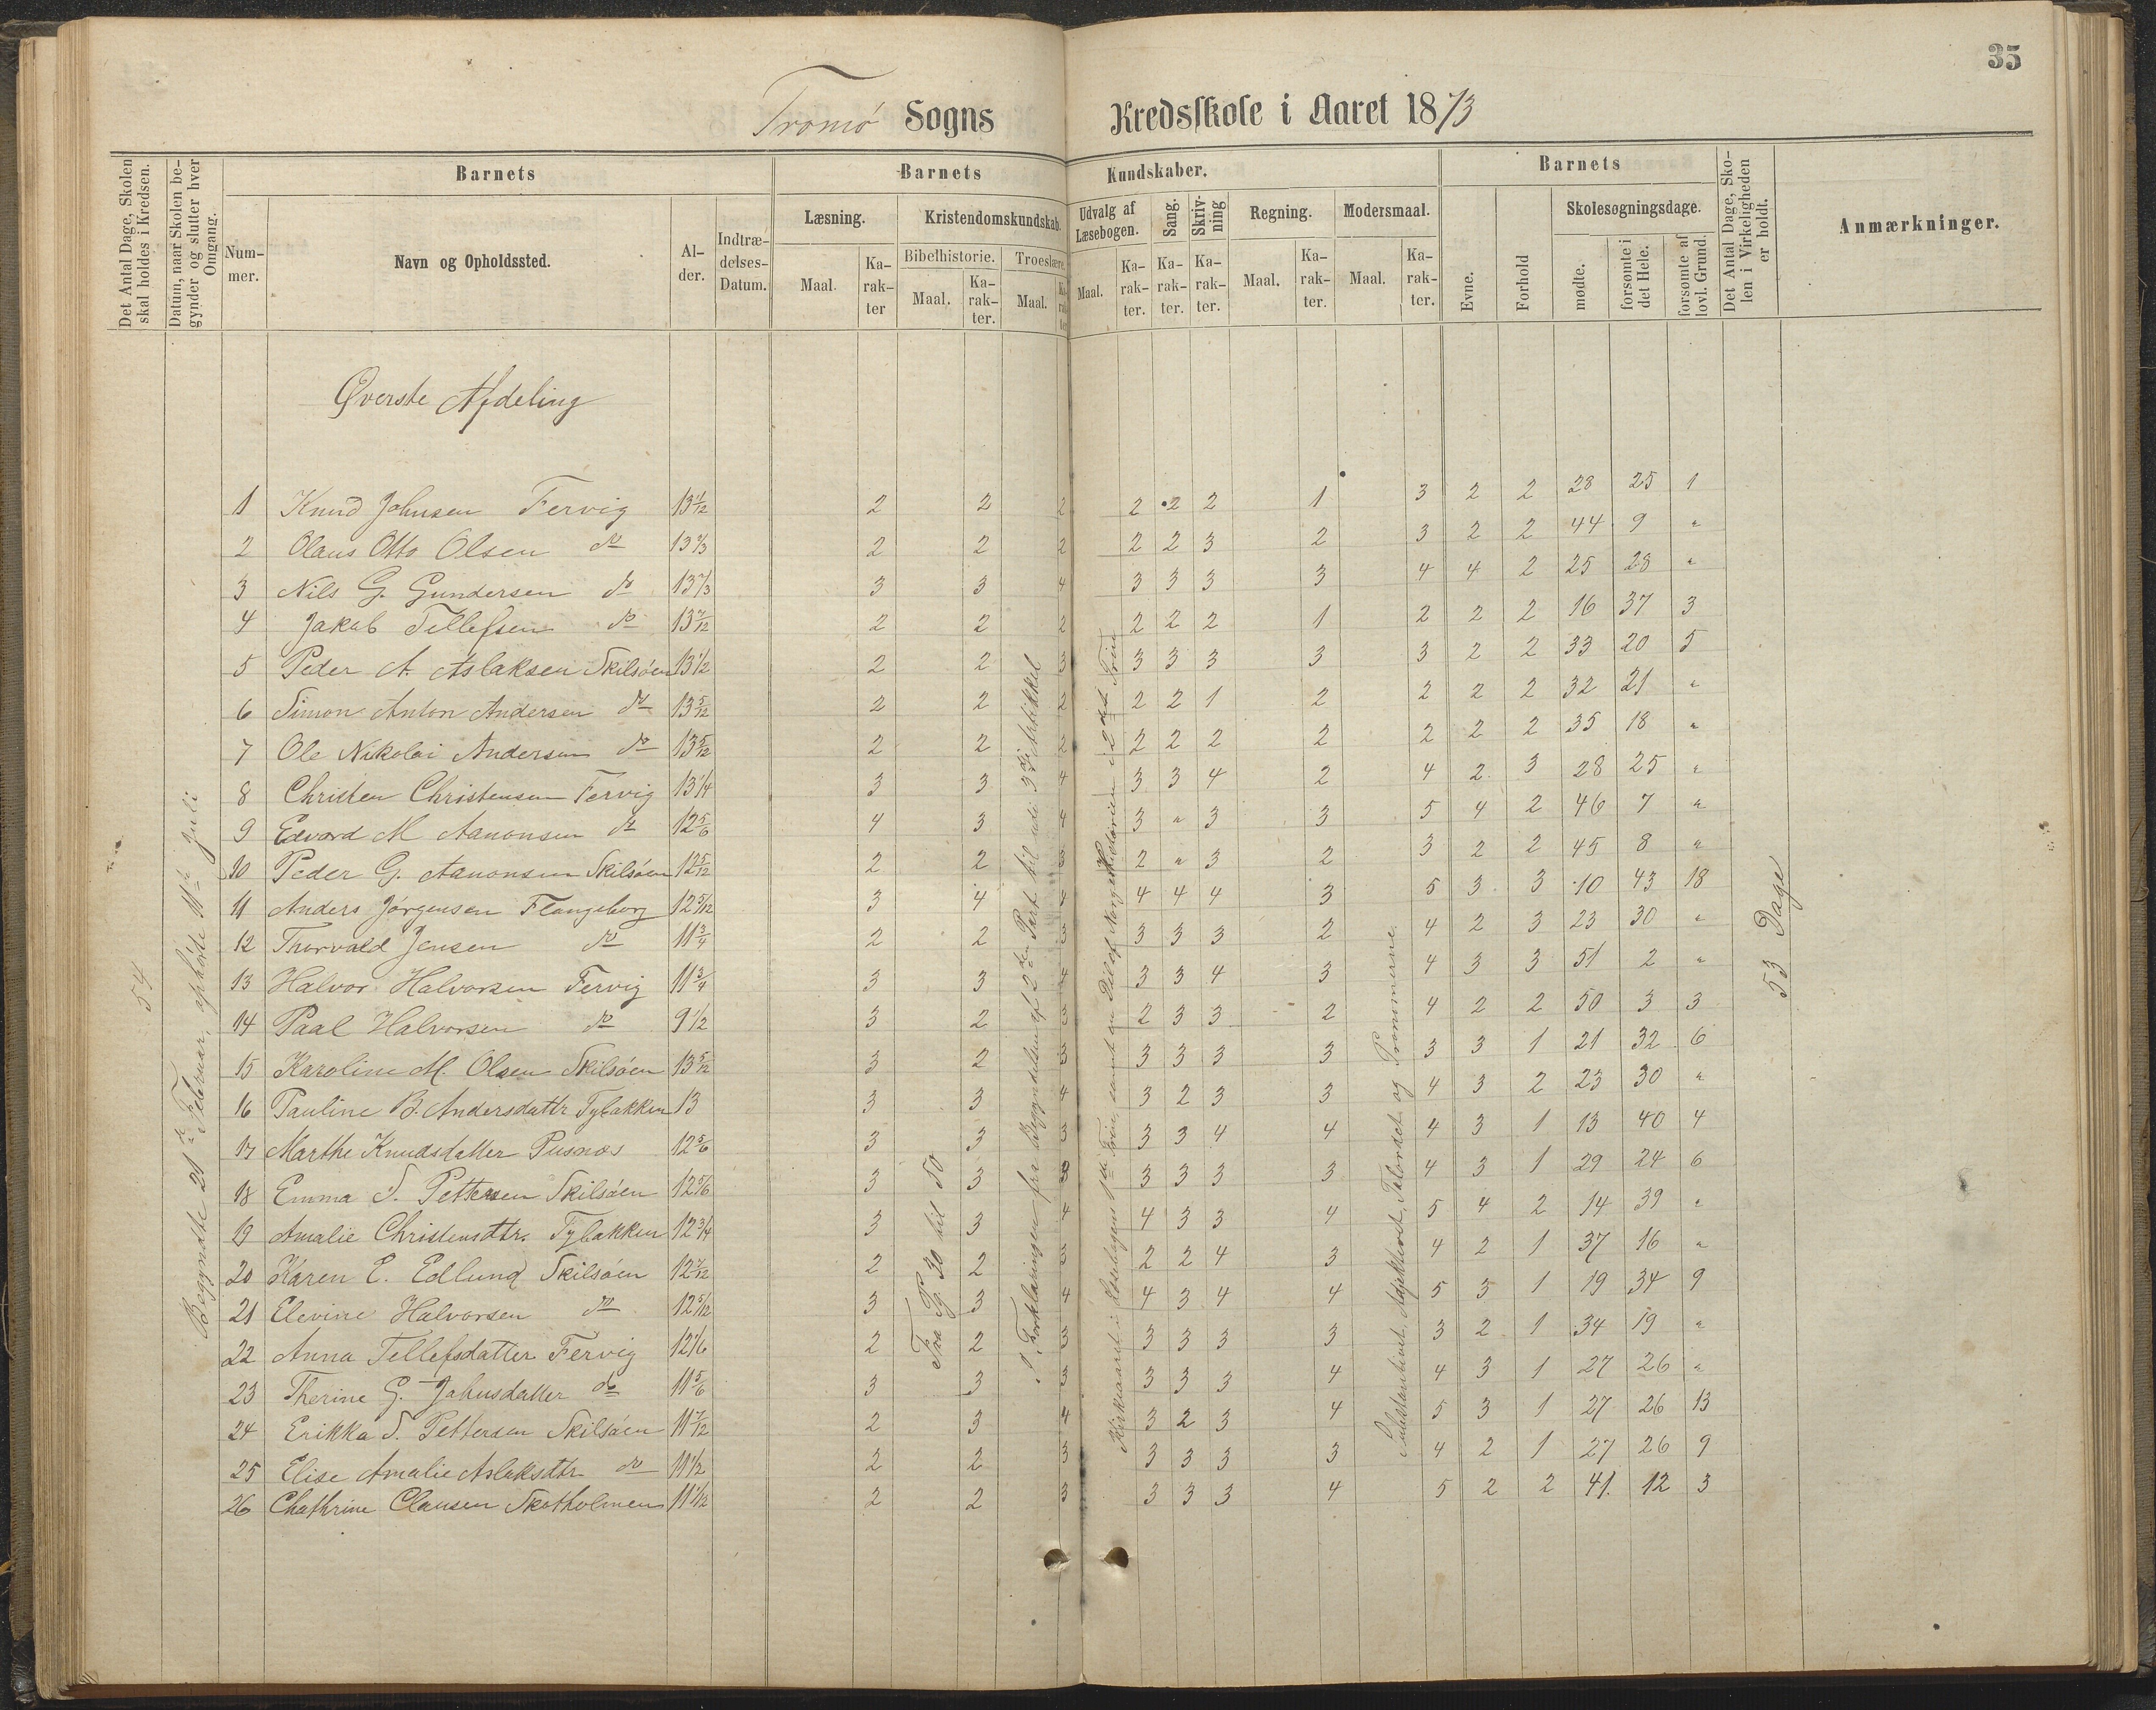 35
Tromø Sogns Kredsskole i Aaret 1873
Det Antal Dage, Skolen skal holdes i Kredsen.
Datum, naar Skolen begynder og slutter hver Omgang.
Barnets
Nummer.
Navn og Opholdssted.
Alder.
Indtrædelses-Datum.
Barnets Kundskaber.
Læsning.
Maal.
Karakter
Kristendomskundskab.
Bibelhistorie.
Maal.
Karakter.
Troeslære.
Maal.
Karakter
Udvalg af Læsebogen.
Maal.
Karakter.
Sang.
Karakter.
Skrivning
Karakter.
Regning.
Maal.
Karakter.
Modersmaal.
Maal.
Karakter.
Barnets
Evne.
Forhold
Skolesøgningsdage.
mødte.
forsømte i det Hele.
forsømte af lovl. Grund.
Det Antal Dage, Skolen i Virkeligheden er holdt.
Anmærkninger.
54
Begyndte 21de Februar, ophørte 11te Juli
Øverste Afdeling
1 Knud Johnsen Fervig 13 1/12 2 2 2 2 2 2 1 3 2 2 28 25 1
2 Olaus Otto Olsen do 13 2/3 2 2 2 2 2 3 2 3 2 2 44 9 "
3 Nils G. Gundersen do 13 2/3 3 3 4 3 3 3 3 4 4 2 25 28 "
4 Jakob Tellefsen do 13 7/12 2 2 2 2 2 2 1 2 2 2 16 37 3
5 Peder A. Aslaksen Skilsøen 13 1/2 2 2 3 3 3 3 3 3 2 2 33 20 5
6 Simon Anton Andersen do 13 5/12 2 2 2 2 2 1 2 2 2 2 32 21 "
7 Ole Nikolai Andersen do 13 5/12 2 2 2 2 2 2 2 2 2 2 35 18 "
8 Christen Christensen Fervig 13 1/4 3 3 4 3 3 4 2 4 2 3 28 25 "
9 Edvard M Aanonsen do 12 5/6 4 3 4 3 " 3 3 5 4 2 46 7 "
10 Peder G. Aanonsen Skilsøen 12 5/12 2 2 3 2 " 3 2 3 2 2 45 8 "
11 Anders Jørgensen Flangeborg 12 5/12 3 4 4 4 4 4 3 5 3 3 10 43 18
12 Thorvald Jensen do 11 3/4 2 2 3 3 3 3 2 4 2 3 23 30 "
13 Halvor Halvorsen Fervig 11 3/4 3 3 4 3 3 4 3 4 3 3 51 2 "
14 Paal Halvorsen do 9 1/2 3 2 3 2 3 3 2 4 2 2 50 3 3
15 Karoline M Olsen Skilsøen 13 5/12 3 2 3 3 3 3 3 3 3 1 21 32 6
16 Pauline B. Andersdattr Tybakken 13 3 3 4 3 2 3 3 4 3 2 23 30 "
17 Marthe Knudsdatter Pusnæs 12 5/6 3 3 3 3 3 4 4 4 3 1 13 40 4
18 Emma S. Pettersen Skilsøen 12 5/6 3 3 3 3 3 3 3 4 3 1 29 24 6
19 Amalie Christensdtr. Tybakken 12 3/4 3 3 4 4 3 3 4 5 4 2 14 39 "
20 Karen E. Edlund Skilsøen 12 7/12 2 2 3 2 2 4 3 4 2 1 37 16 "
21 Elevine Halvorsen do 12 5/12 3 3 4 4 3 4 4 5 3 1 19 34 9
22 Anna Tellefsdatter Fervig 12 1/6 2 2 3 3 3 3 3 3 2 1 34 19 "
23 Therine G. Johnsdatter do 11 5/6 3 3 3 3 3 3 4 4 3 1 27 26 "
24 Erikka S. Pettersen Skilsøen 11 7/12 2 3 4 3 2 3 4 5 3 1 27 26 13
25 Elise Amalie Aslaksdtr do 11 1/2 2 2 3 3 3 3 3 4 2 1 27 26 9
26 Chathrine Clausen Skotholmen 11 1/12 2 2 3 3 3 3 4 5 2 2 41 12 3
Fra Pg 30 til 50
I Forklaringen fra Begyndelsen af 2den Part til udi 3die Artikkel
Kirkeaaret i Læsebogens 1ste Trin, samt en Del af Norgeshistorien i 2det Trin
Substantivet, Adjektivet, Talordet og Pronomerne.
53 Dage